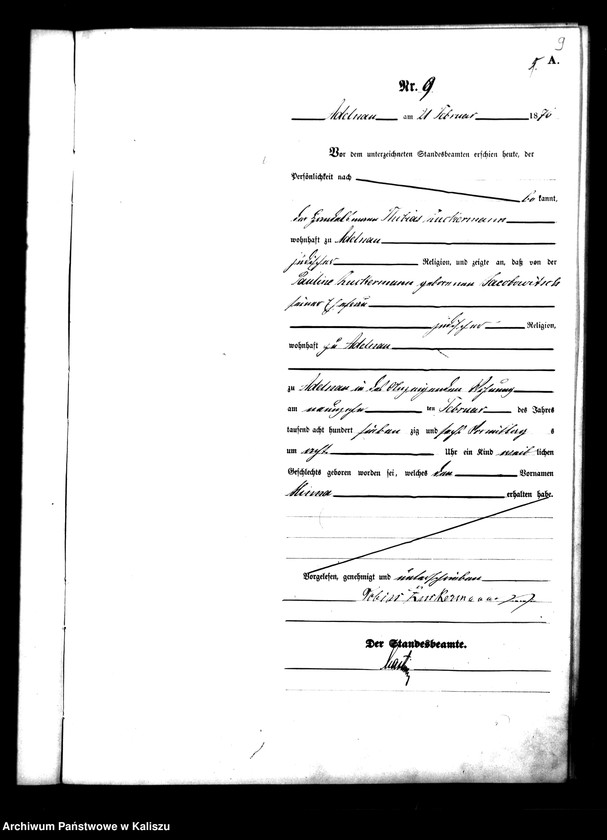 9
A.
Nr. 9
Adelnau am 21 Februar 1876
Vor dem unterzeichneten Standesbeamten erschien heute, der
Persönlichkeit nach
be kannt,
der Handelsmann Tobias Zuckermann
wohnhaft zu Adelnau
jüdischer Religion, und zeigte an, daß von der
Pauline Zuckermann geborenen Jacobowitsch
seiner Ehefrau
jüdischer Religion,
wohnhaft zu Adelnau
zu Adelnau in des Anzeigenden Wohnung
am neunzehn ten Februar des Jahres
tausend acht hundert sieben zig und sechs Vormittag s
um acht Uhr ein Kind weib lichen
Geschlechts geboren worden sei, welches den Vornamen
Minna erhalten habe.
Vorgelesen, genehmigt und unterschrieben
Tobias Zuckermann
Der Standesbeamte.
Archiwum Państwowe w Kaliszu